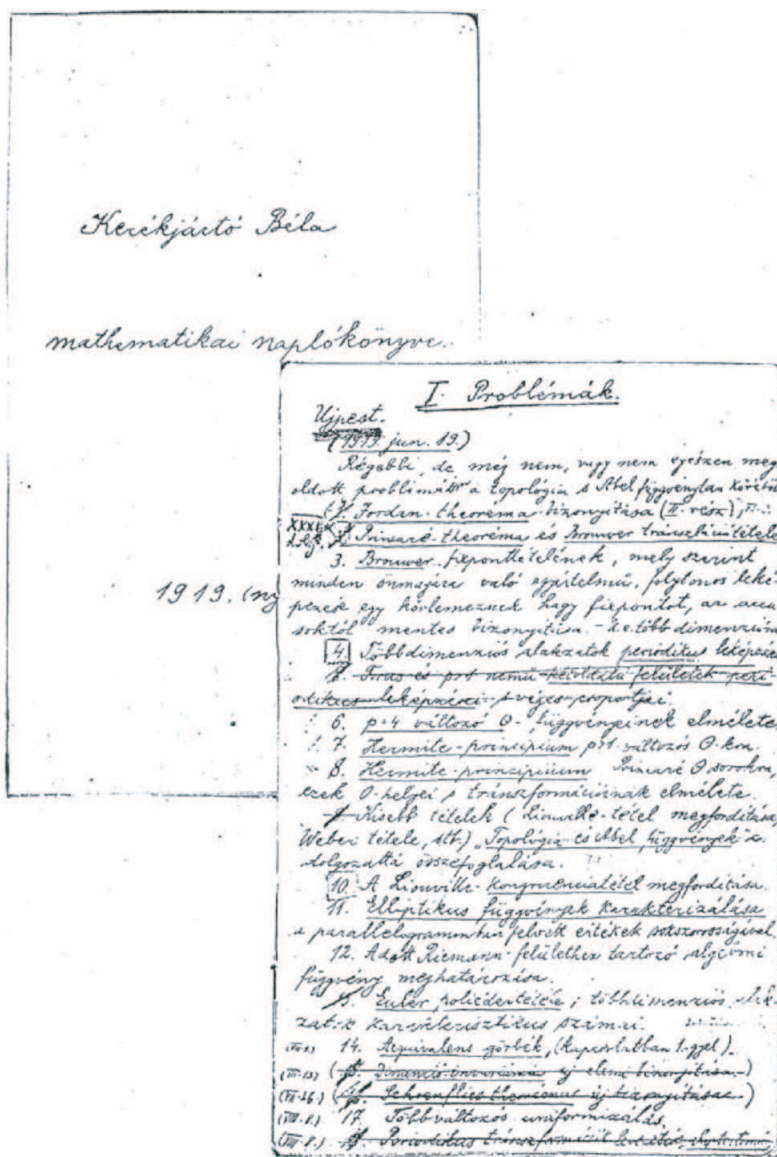 Kerékjártó Béla
mathematikai naplókönyve.
1919. (ny
I. Problémák.
Ujpest.
(1919. jun. 19.)
Régebbi, de még nem, vagy nem egészen meg
oldott problémák a topológia s Abel függvénytan köréből
1. Jordan-theorema bizonyítása (II. rész),
2. Poincaré-theoréma és Brouwer translációtétele
3. Brouwer fixponttételének, mely szerint
minden önmagára való egyértelmű, folytonos leké-
pezés egy körlemeznek hagy fixpontot, az
soktól mentes bizonyítása. - több dimenzióra
4. Többdimenziós alakzatok periódikus leképezései
5. Torus és p>1 nemű kétoldalú felületek peri-
odikus leképzései s véges csoportjai.
6. p=4 változó Θ-függvényeinek elmélete
7. Hermite-principium p>1 változós Θ-kra.
8. Hermite-principium Poincaré Θ sorokra
ezek 0-helyei s transzformációinak elmélete.
9. Kisebb tételek (Liouville-tétel megfordítása,
Weber tétele, stb.) "Topológia és Abel függvények" c.
dolgozattá összefoglalása.
10. A Liouville-kongruenciatétel megfordítása.
11. Elliptikus függvények karakterizálása
a parallelogrammban felvett értékek sokszorosságával.
12. Adott Riemann-felülethez tartozó algebrai
függvény meghatározása.
13. Euler poliédertétele; többdimenziós alak-
zatok karakterisztikus számai.
14. Aequivalens görbék, (kapcsolatban 1.-gyel).
(15. Dimenzió invariáncia új elemi bizonyítása.)
(16. Schoenflies új bizonyítása.)
(VIII. 8.) 17. Többváltozós uniformizálás,
(VIII. 8.) 18. Periodikus transzformációk